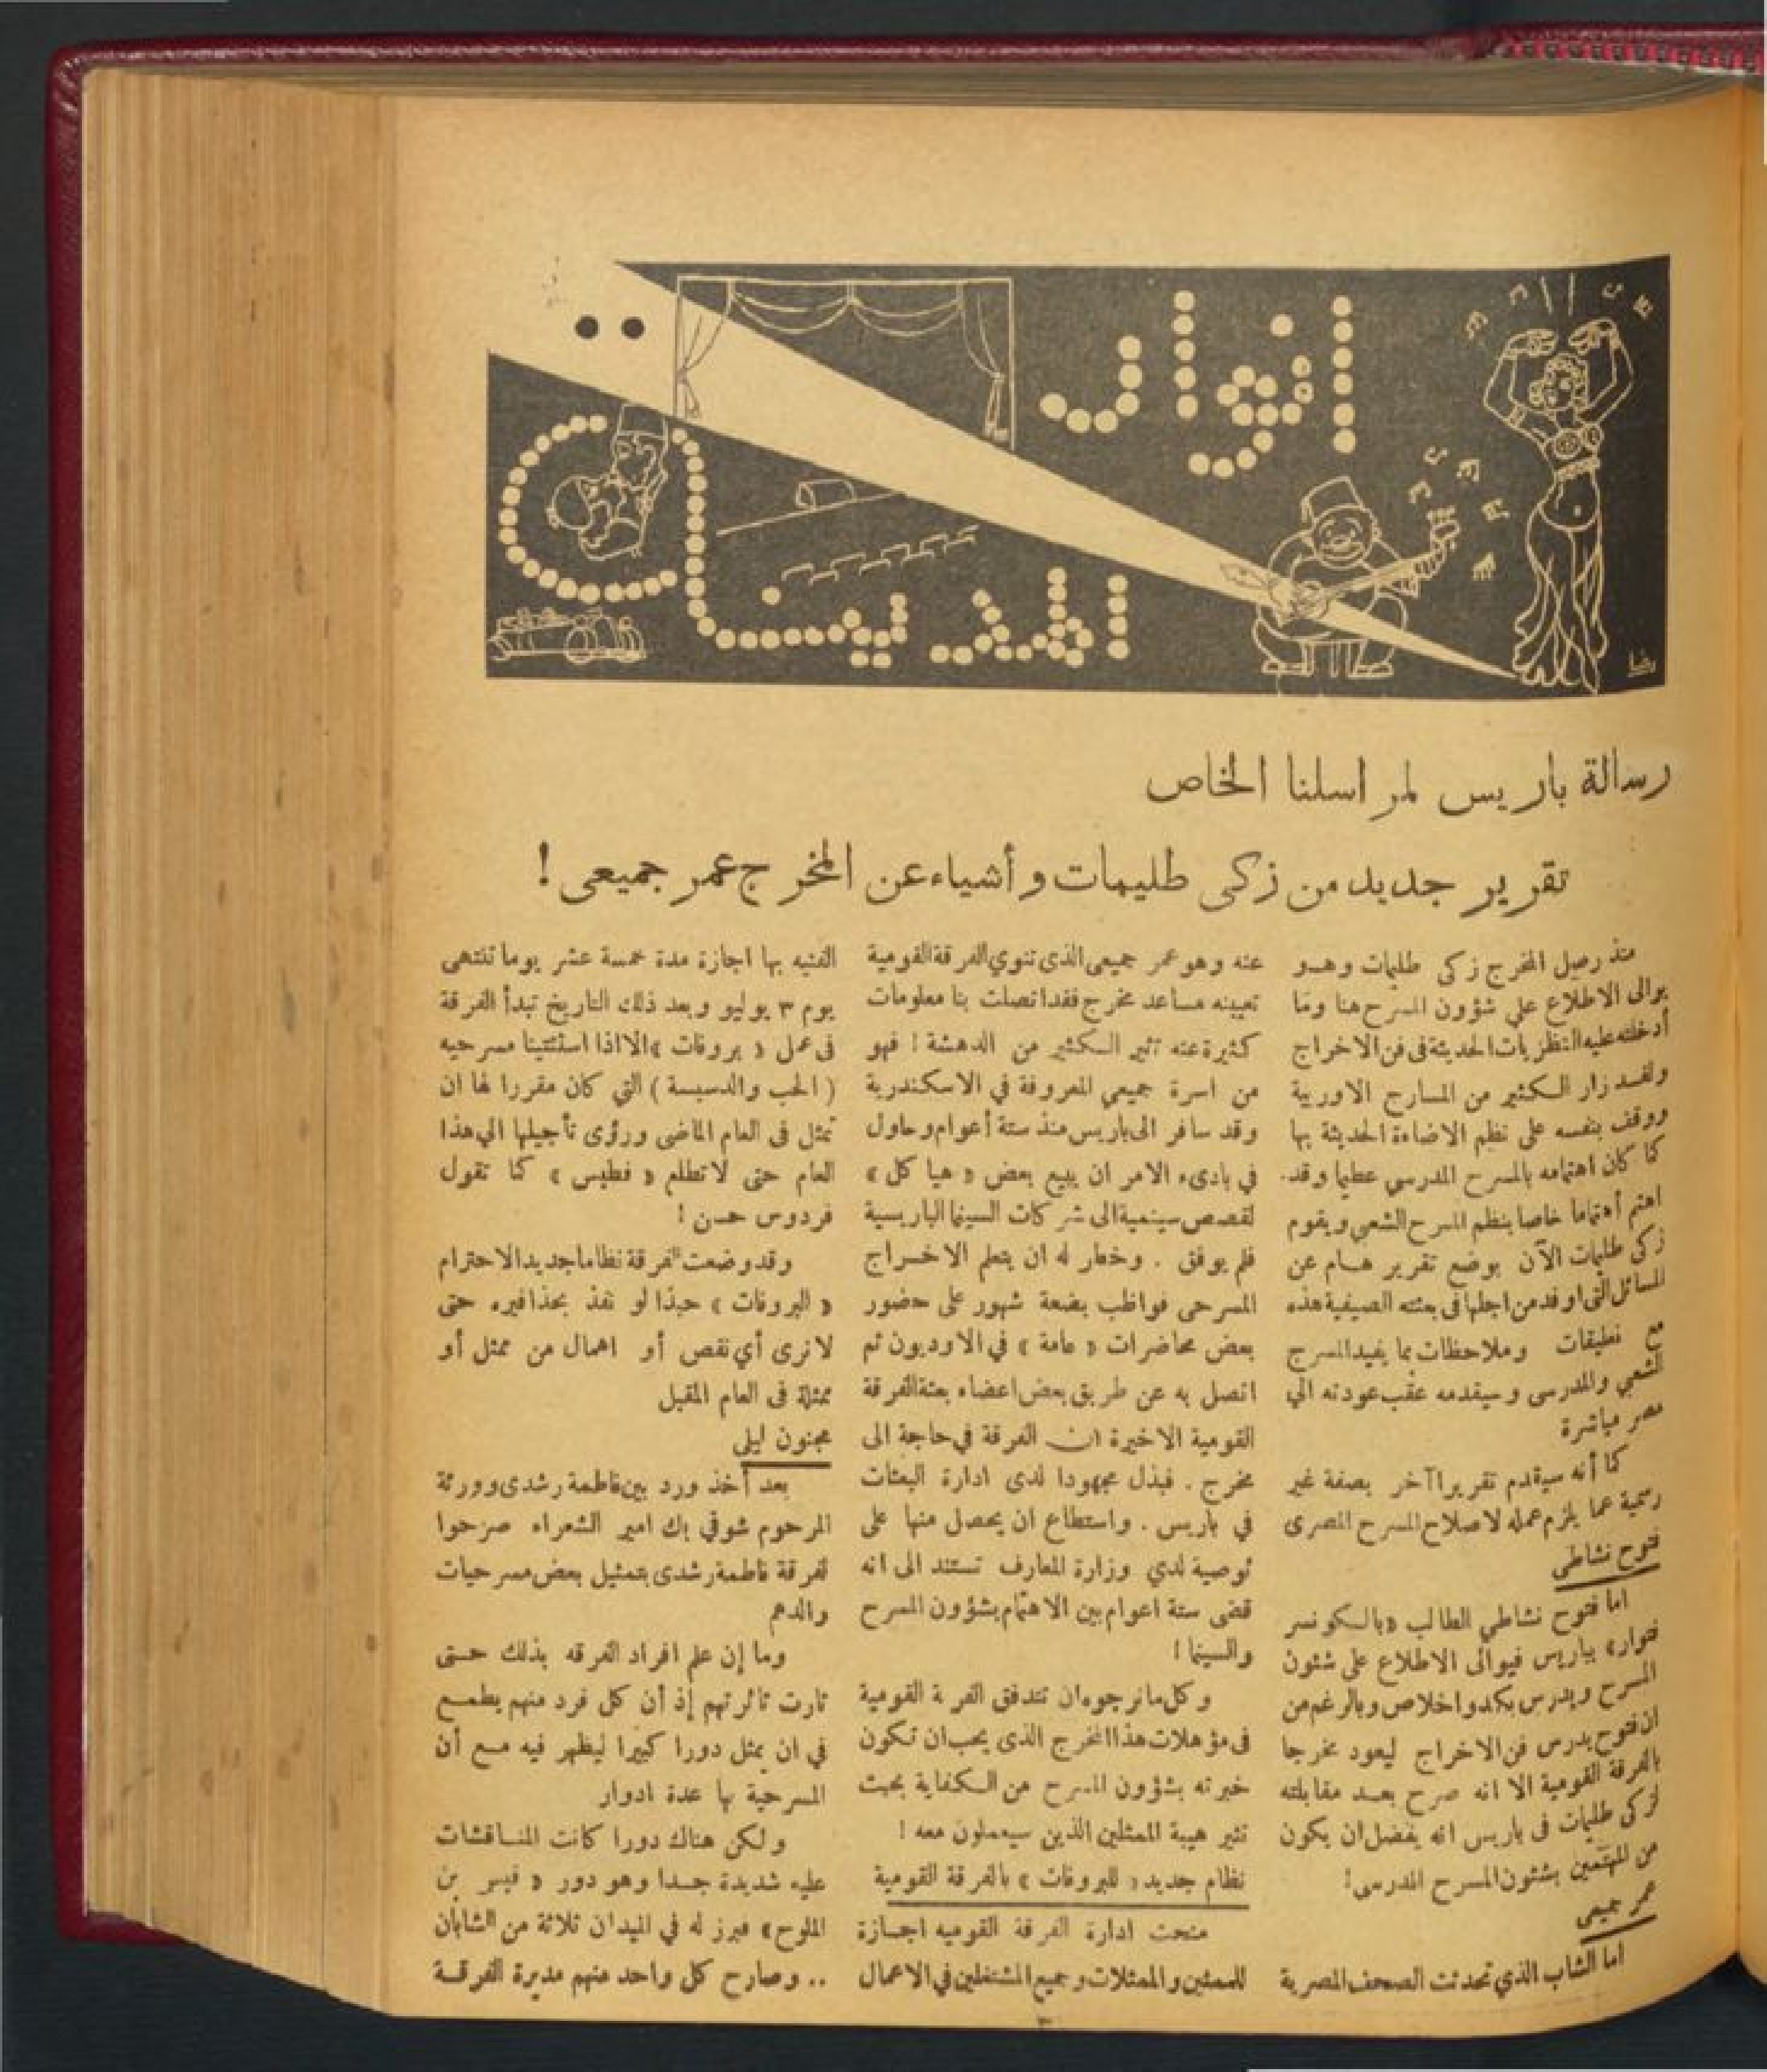 انوار
المدينة
رضا
رسالة باريس لمراسلنا الخاص
تقرير جديد من زكى طليمات وأشياء عن المخرج عمر جميعى !
منذ وصل المخرج زكى طليمات وهو
يوالى الاطلاع على شؤون المسرح هنا وما
أدخلته عليه النظريات الحديثة فى فن الاخراج
ولقد زار الكثير من المسارح الاوربية
ووقف بنفسه على نظم الاضاءة الحديثة بها
كما كان اهتمامه بالمسرح المدرسي عظيما وقد
اهتم أهتماما خاصا بنظم المسرح الشعبى ويقوم
زكى طليمات الآن بوضع تقرير هام عن
المسائل التى اوفد من اجلها فى بعثته الصيفية هذه
مع تعليقات وملاحظات بما يفيد المسرح
الشعبي والمدرسى وسيقدمه عقب عودته الي
مصر مباشرة
كما أنه سيقدم تقريرا آخر بصفة غير
رسمية عما يلزم عمله لاصلاح المسرح المصرى
فتوح نشاطى
اما فتوح نشاطي الطالب «بالكونسر
فتوار» بباريس فيوالى الاطلاع على شئون
المسرح ويدرس بكد واخلاص وبالرغم من
ان فتوح يدرس فن الاخراج ليعود مخرجا
بالفرقة القومية الا انه صرح بعد مقابلته
لزكى طليمات فى باريس انه يفضل ان يكون
من المهتمين بشئون المسرح المدرسى !
عمر جميعى
اما الشاب الذي تحدثت الصحف المصرية
عنه وهو عمر جميعى الذى تنوي الفرقة القومية
تعيينه مساعد مخرج فقد اتصلت بنا معلومات
كثيرة عنه تثير الكثير من الدهشة ! فهو
من اسرة جميعي المعروفة في الاسكندرية
وقد سافر الى باريس منذ ستة أعوام وحاول
في بادىء الامر ان يبيع بعض « هيا كل »
لقصص سينمية الى شركات السينما الباريسية
فلم يوفق . وخطر له ان يتعلم الاخراج
المسرحى فواظب بضعة شهور على حضور
بعض محاضرات « عامة » في الاوديون ثم
اتصل به عن طريق بعض اعضاء بعثة الفرقة
القومية الاخيرة ان الفرقة في حاجة الى
مخرج . فبذل مجهودا لدى ادارة البعثات
في باريس . واستطاع ان يحصل منها على
توصية لدي وزارة المعارف تستند الى انه
قضى ستة اعوام بين الاهتمام بشؤون المسرح
والسينما !
وكل ما نرجوه ان تتدقق الفرقة القومية
فى مؤهلات هذا المخرج الذى يجب ان تكون
خبرته بشؤون المسرح من الكفاية بحيث
تثير هيبة الممثلين الذين سيعملون معه !
نظام جديد « للبروفات » بالفرقة القومية
منحت ادارة الفرقة القوميه اجازة
للممثلين والممثلات وجميع المشتغلين في الاعمال
الفنيه بها اجازة مدة خمسة عشر يوما تنتهى
يوم ٣ يوليو وبعد ذلك التاريخ تبدأ الفرقة
فى عمل « بروفات » الا اذا استثنينا مسرحيه
( الحب والدسيسة ) التي كان مقررا لها ان
تمثل فى العام الماضى ورؤى تأجيلها الي هذا
العام حتى لا تطلع « فطيس » كما تقول
فردوس حسن !
وقد وضعت الفرقة نظاما جديدا لاحترام
« البروفات » حبذا لو نفذ بحذافيره حتى
لا نرى أي نقص أو اهمال من ممثل أو
ممثلة فى العام المقبل
مجنون ليلى
بعد أخذ ورد بين فاطمة رشدى وورثة
المرحوم شوقي بك امير الشعراء صرحوا
لفرقة فاطمة رشدى بتمثيل بعض مسرحيات
والدهم
وما إن علم افراد الفرقه بذلك حتى
ثارت ثائرتهم إذ أن كل فرد منهم يطمع
في ان يمثل دورا كبيرا ليظهر فيه مع أن
المسرحية بها عدة ادوار
ولكن هناك دورا كانت المناقشات
عليه شديدة جدا وهو دور « قيس بن
الملوح» فبرز له في الميدان ثلاثة من الشابان
.. وصارح كل واحد منهم مديرة الفرقة
٣